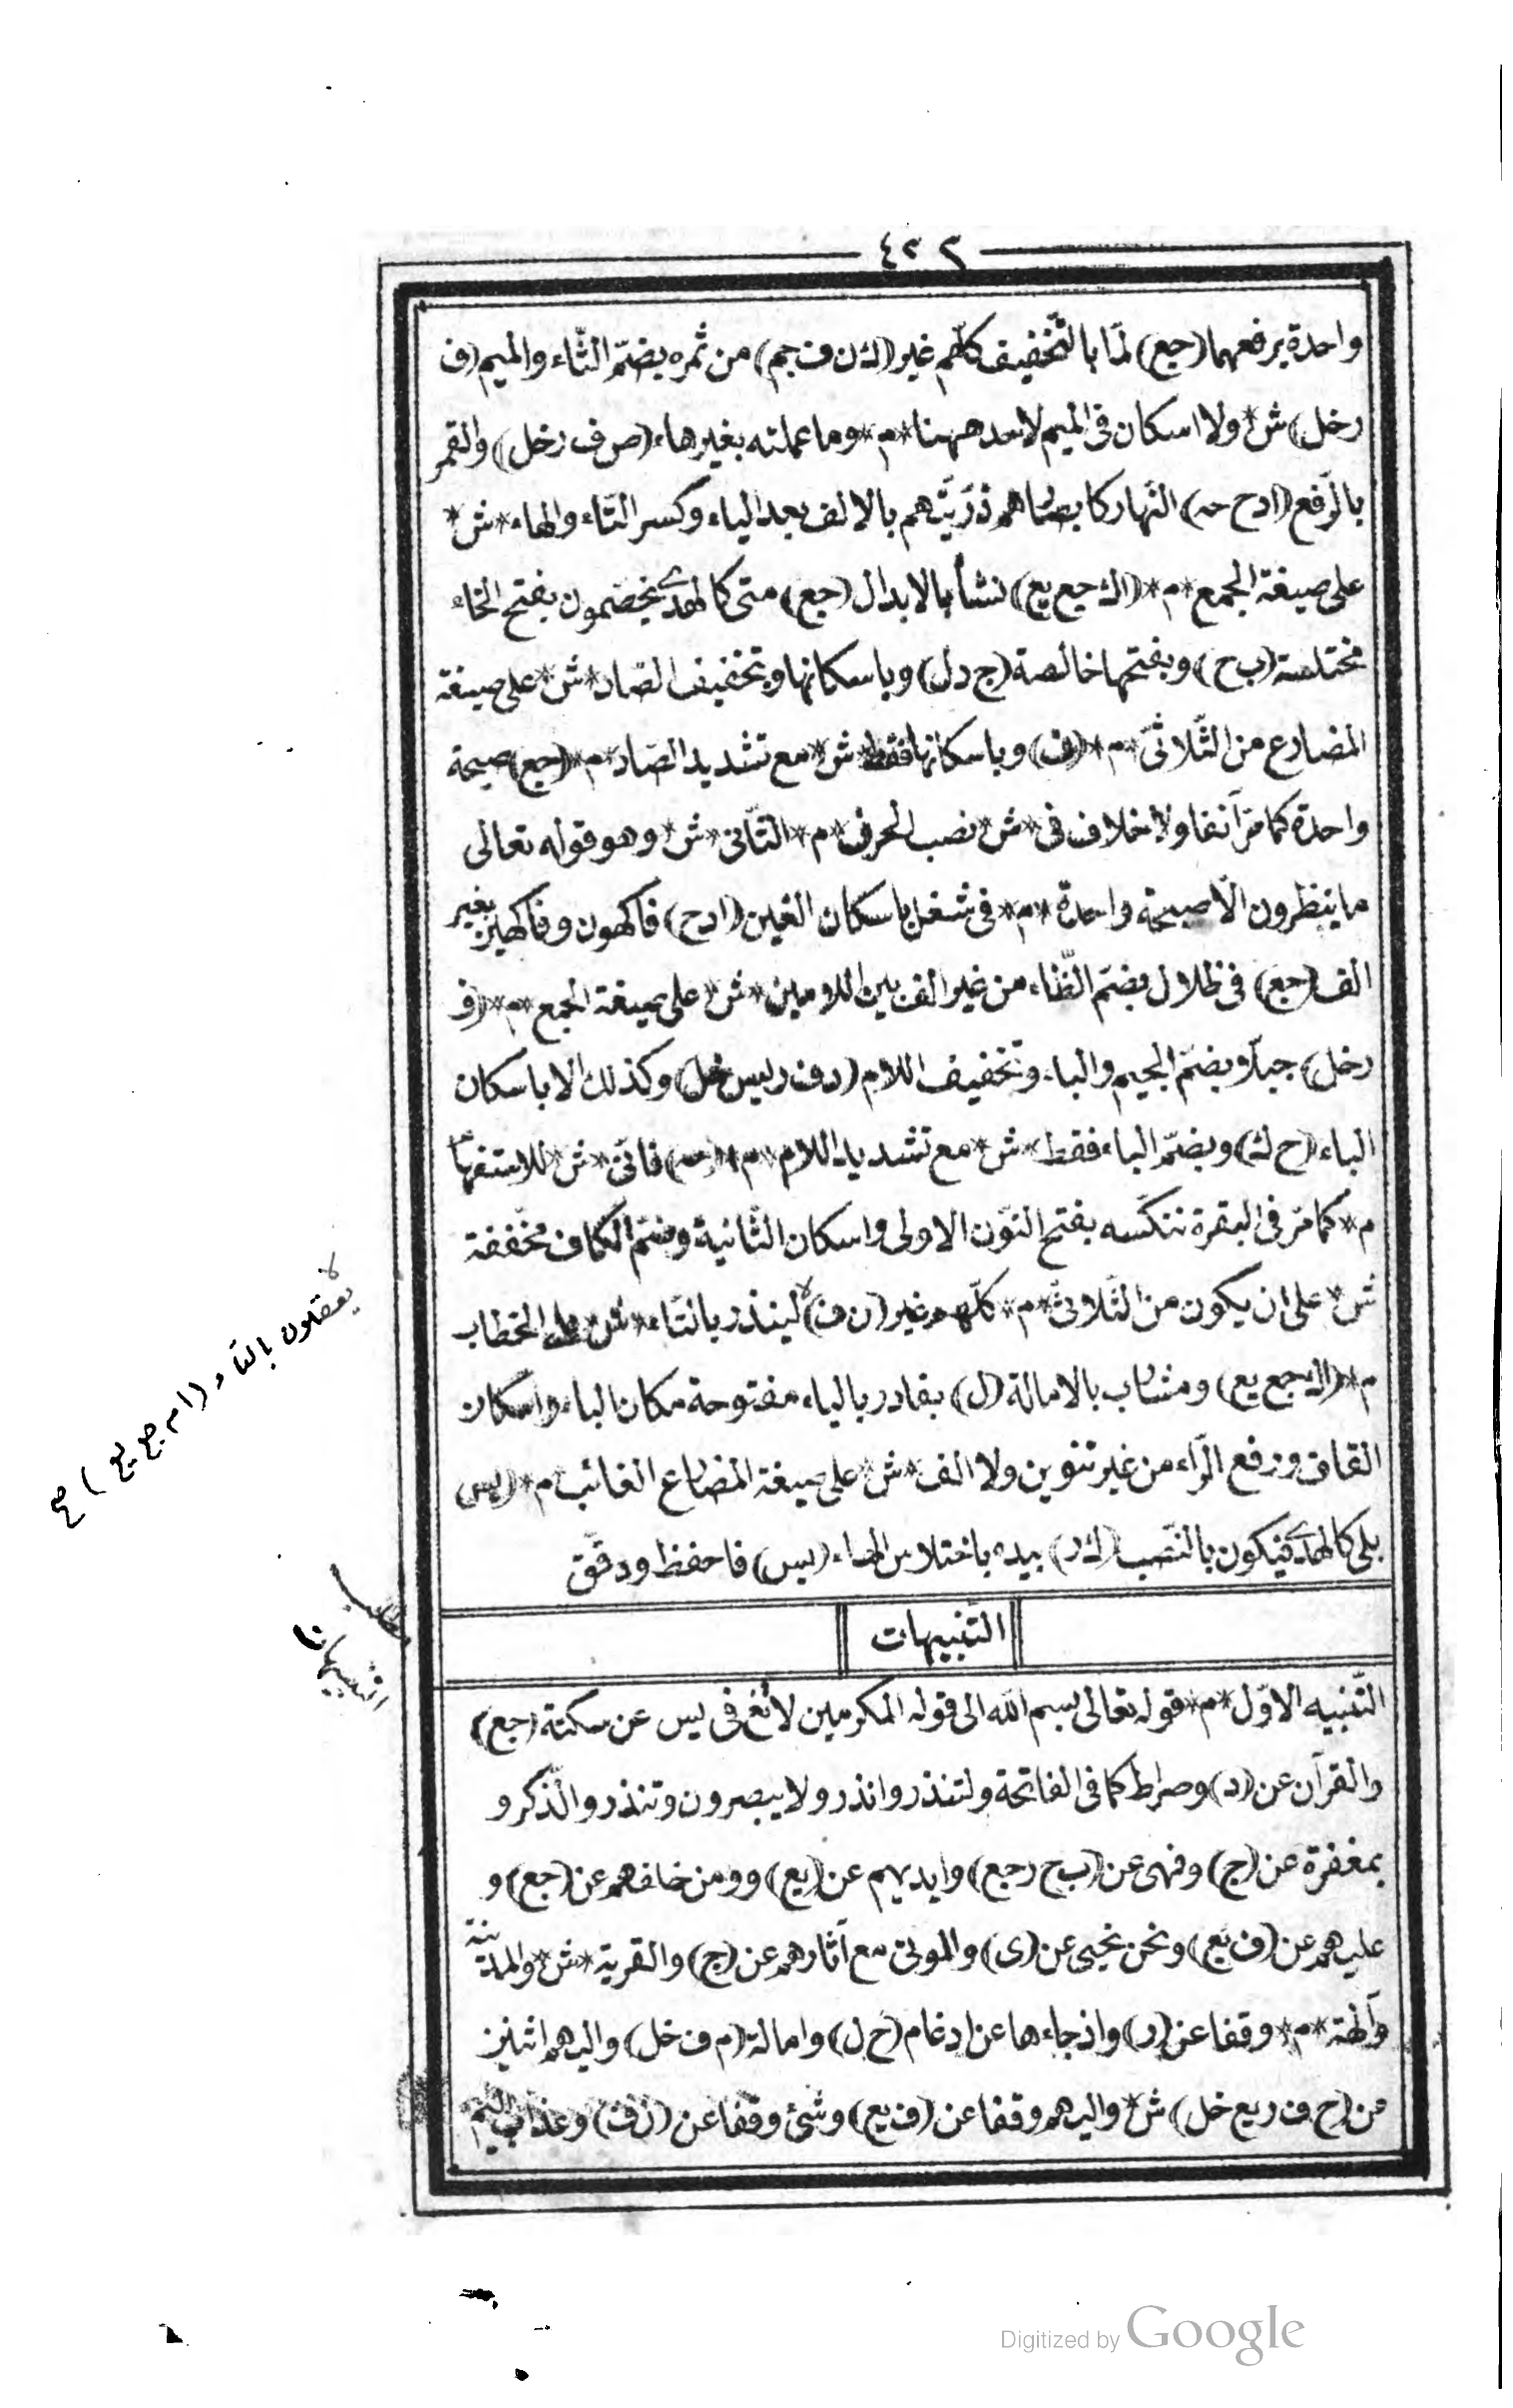 ٤٢٢
واحدة برفعهما (جع) لمّا بالتّخفيف كلّهم غير (ك ن ف جم) من ثمره بضمّ الثّاء والميم (ف
رخل) ش* ولا اسكان فى الميم لاحد ههنا *م* وما عملته بغيرها (ص ف رخل) والقمر
بالرّفع (ا د ح حه) النّهار كابصارهم ذرّيّتهم بالالف بعد الياء وكسر التّاء والهاء *ش*
على صيغة الجمع *م* (اك جع يع) نشأ بالابدال (جع) متى كالهدى يخصّمون بفتح الخاء
مختلسة (ب ح) وبفتحها خالصة (ج د ل) وباسكانها وتخفيف الصّاد *ش* على صيغة
المضارع من الثّلاثىّ *م* (ف) وباسكانها فقط *ش* مع تشديد الصّاد *م* (جع) صيحة
واحدة كما مرّ آنفا ولا خلاف فى *ش* نصب الحرف *م* الثّانى *ش* وهو قوله تعالى
ما ينظرون الّا صيحة واحدة *م* فى شغل باسكان الغين (ا د ح) فاكهون وفاكهين بغير
الف (جع) فى ظلال بضمّ الظّاء من غير الف بين اللامين *ش* على صيغة الجمع *م* (ف
رخل) جبلّا وبضمّ الجيم والباء وتخفيف اللام (د ف ريس خل) وكذلك الا باسكان
الباء (ح ك) وبضمّ الباء فقط *ش* مع تشديد اللام *م* (حه) فانّى *ش* للاستفهام
م* كما مرّ فى البقرة ننكّسه بفتح النّون الاولى واسكان الثّانية وضمّ الكاف مخفّفة
ش* على ان يكون من الثّلاثىّ *م* كلّهم غير (ن ف) لا لينذر بالتّاء *ش* على الخطاب
م* (اك جع يع) ومشارب بالامالة (ل) بقادر بالياء مفتوحة مكان الباء واسكان
القاف ورفع الرّاء من غير تنوين ولا الف *ش* على صيغة المضارع الغائب *م* (يس
بلى كالهدى فيكون بالنّصب (ك ر) بيده باختلاس الهاء (يس) فاحفظ ودقّق
لا
يعقلون بالتاء (ام جع يع) صح
مطلب
التنبيهات
التّنبيهات
التّنبيه الاوّل *م* قوله تعالى بسم الله الى قوله المكرمين لا تغ فى يس عن سكتة (جع)
والقرآن عن (د) وصراط كما فى الفاتحة ولتنذر وانذر ولا يبصرون وتنذر والذّكر و
بمغفرة عن (ج) وفهى عن (ب ح ر جع) وايديهم عن (يع) وومن خلفهم عن (جع) و
عليهم عن (ف يع) ونحن نحيى عن (ى) والموتى مع آثارهم عن (ج) والقرية *ش* والمدينة
وآلهة *م* وقفا عن (ر) واذ جاءها عن ادغام (ح ل) وامالة (م ف خل) واليهم اثنين
عن (ح ف ر يع خل) ش* واليهم وقفا عن (ف يع) وشئ وقفا عن (ز ف) وعذاب اليم
Digitized by Google